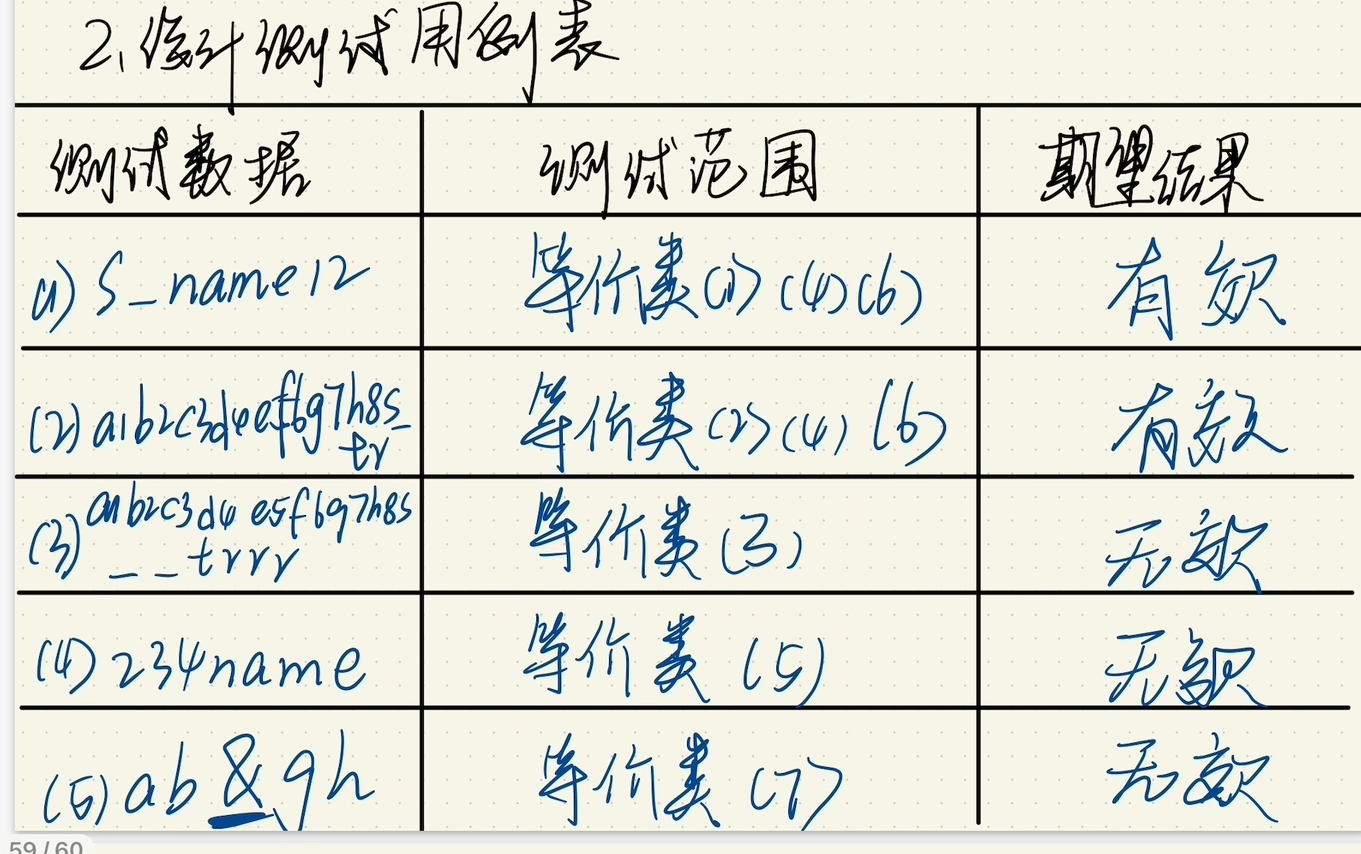 2、设计测试用例表
测试数据 测试范围 期望结果
(1) S_name12 等价类(1)(4)(6) 有效
(2) a1b2c3d4ef6g7h8s_
tr 等价类(2)(4)(6) 有效
(3) a1b2c3d4e5f6g7h8s
__trrr 等价类(3) 无效
(4) 234name 等价类(5) 无效
(5) ab&gh 等价类(7) 无效
59 / 60